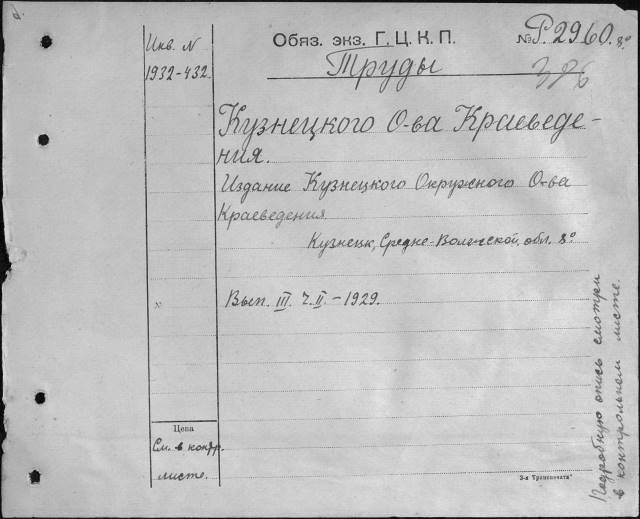 Инв. N
1932-432.
Обяз. экз. Г. Ц. К. П.
№ Р. 2960. 8.°
Труды
386
Кузнецкого О-ва Краеведе-
ния.
Издание Кузнецкого Окружного О-ва
Краеведения
Кузнецк, Средне-Волжской, обл. 8°
Вып. III. ч. II. – 1929.
Цена
См. в контр.
листе.
3-я Транспечати"
Подробную опись смотри
в контрольном листе.